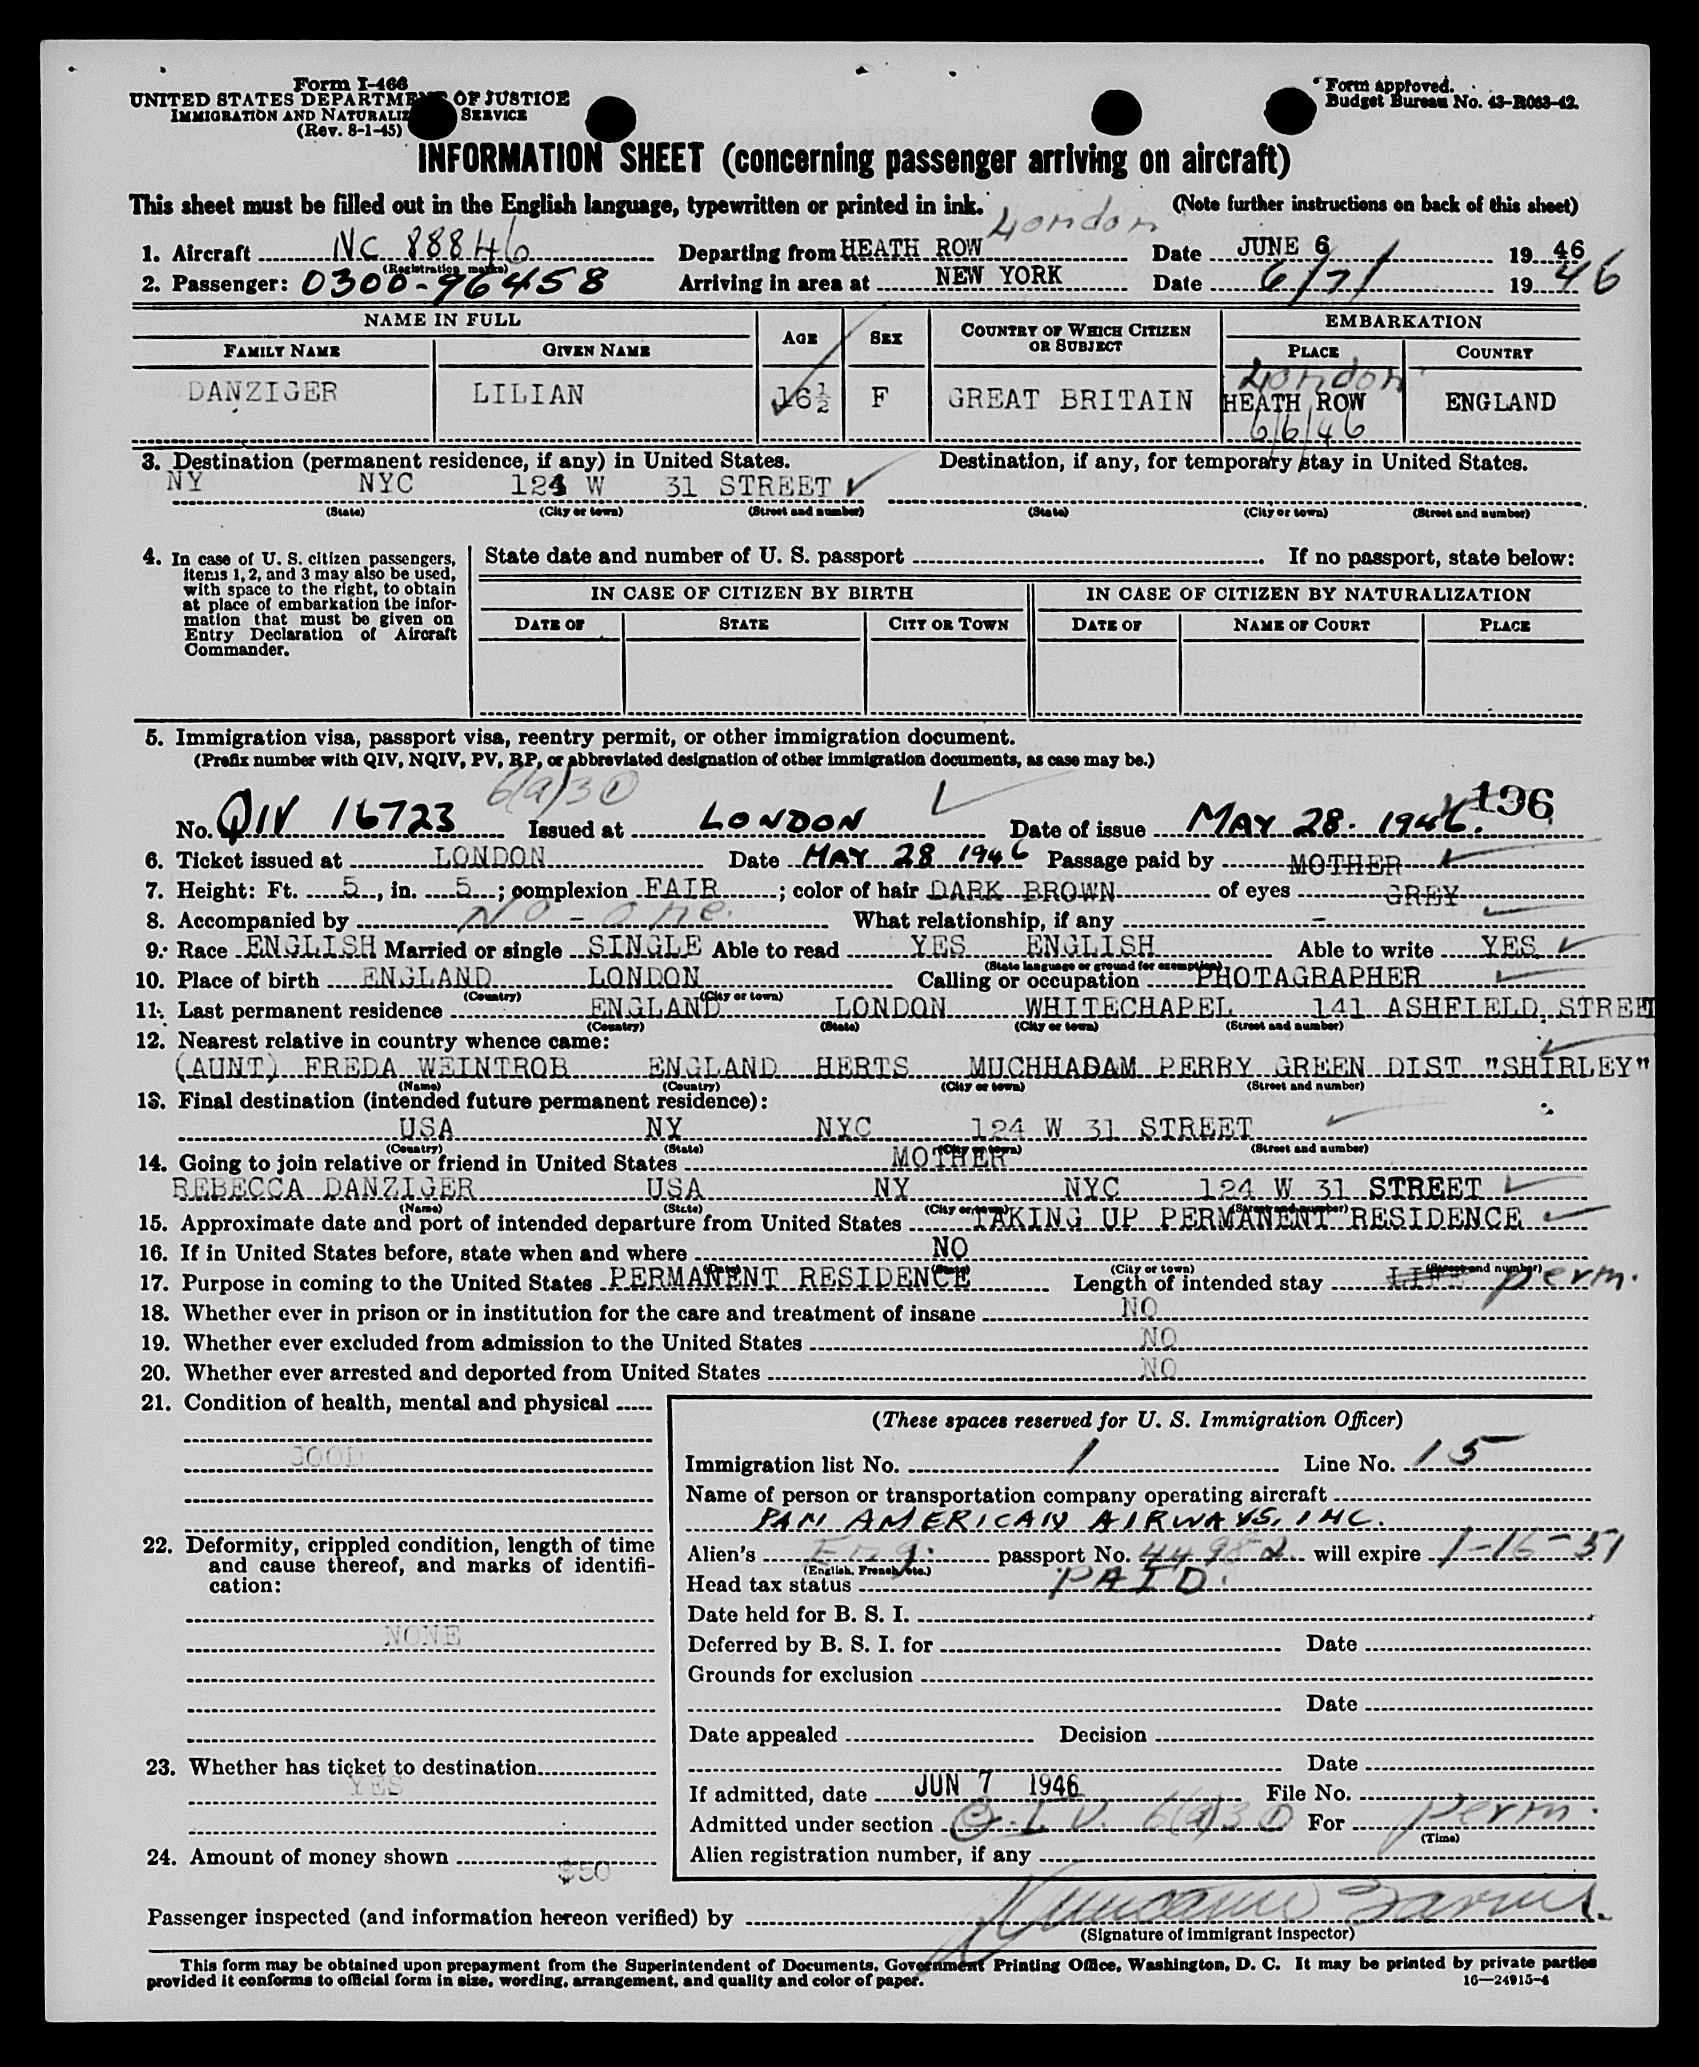 Form I-466
UNITED STATES DEPARTMENT OF JUSTICE
IMMIGRATION AND NATURALIZ SERVICE
(Rev. 8-1-45)
Form approved.
Budget Bureau No. 43-R063-42.
INFORMATION SHEET (concerning passenger arriving on aircraft)
This sheet must be filled out in the English language, typewritten or printed in ink. (Note further instructions on back of this sheet)
London
1. Aircraft NC 88846 Departing from HEATH ROW Date JUNE 6 1946
(Registration marks)
2. Passenger: 0300-96458 Arriving in area at NEW YORK Date 6/7/ 1946
NAME IN FULL AGE SEX COUNTRY OF WHICH CITIZEN OR SUBJECT EMBARKATION
FAMILY NAME GIVEN NAME PLACE COUNTRY
London
DANZIGER LILIAN 16½ F GREAT BRITAIN HEATH ROW ENGLAND
6/6/46
3. Destination (permanent residence, if any) in United States. Destination, if any, for temporary stay in United States.
NY NYC 124 W 31 STREET
(State) (City or town) (Street and number) (State) (City or town) (Street and number)
4. In case of U. S. citizen passengers, items 1, 2, and 3 may also be used, with space to the right, to obtain at place of embarkation the information that must be given on Entry Declaration of Aircraft Commander.
State date and number of U. S. passport If no passport, state below:
IN CASE OF CITIZEN BY BIRTH IN CASE OF CITIZEN BY NATURALIZATION
DATE OF STATE CITY OR TOWN DATE OF NAME OF COURT PLACE
5. Immigration visa, passport visa, reentry permit, or other immigration document.
(Prefix number with QIV, NQIV, PV, RP, or abbreviated designation of other immigration documents, as case may be.)
196
No. QIV 16723 Issued at LONDON Date of issue MAY 28. 1946.
6. Ticket issued at LONDON Date MAY 28 1946 Passage paid by MOTHER
7. Height: Ft. 5, in. 5; complexion FAIR; color of hair DARK BROWN of eyes GREY
8. Accompanied by No - one. What relationship, if any -
9. Race ENGLISH Married or single SINGLE Able to read YES ENGLISH Able to write YES
(State language or ground for exemption)
10. Place of birth ENGLAND LONDON Calling or occupation PHOTAGRAPHER
(Country) (City or town)
11. Last permanent residence ENGLAND LONDON WHITECHAPEL 141 ASHFIELD STREET
(Country) (State) (City or town) (Street and number)
12. Nearest relative in country whence came:
(AUNT) FREDA WEINTROB ENGLAND HERTS MUCHHADAM PERRY GREEN DIST "SHIRLEY"
(Name) (Country) (City or town) (Street and number)
13. Final destination (intended future permanent residence):
USA NY NYC 124 W 31 STREET
(Country) (State) (City or town) (Street and number)
14. Going to join relative or friend in United States MOTHER
REBECCA DANZIGER USA NY NYC 124 W 31 STREET
(Name) (State) (City or town) (Street and number)
15. Approximate date and port of intended departure from United States TAKING UP PERMANENT RESIDENCE
16. If in United States before, state when and where NO
(Date) (State) (City or town) (Street and number)
17. Purpose in coming to the United States PERMANENT RESIDENCE Length of intended stay LIFE perm.
18. Whether ever in prison or in institution for the care and treatment of insane NO
19. Whether ever excluded from admission to the United States NO
20. Whether ever arrested and deported from United States NO
21. Condition of health, mental and physical
GOOD
22. Deformity, crippled condition, length of time and cause thereof, and marks of identification:
NONE
23. Whether has ticket to destination
YES
24. Amount of money shown $50
(These spaces reserved for U. S. Immigration Officer)
Immigration list No. 1 Line No. 15
Name of person or transportation company operating aircraft
PAN AMERICAN AIRWAYS, INC.
Alien's Eng. passport No. 44982 will expire 1-16-51
(English, French, etc.)
Head tax status PAID.
Date held for B. S. I.
Deferred by B. S. I. for Date
Grounds for exclusion
Date
Date appealed Decision
Date
If admitted, date JUN 7 1946 File No.
Admitted under section Q.I.V. 6(a)3 For perm.
(Time)
Alien registration number, if any
Passenger inspected (and information hereon verified) by
(Signature of immigrant inspector)
This form may be obtained upon prepayment from the Superintendent of Documents, Government Printing Office, Washington, D. C. It may be printed by private parties
provided it conforms to official form in size, wording, arrangement, and quality and color of paper. 16—24915-4